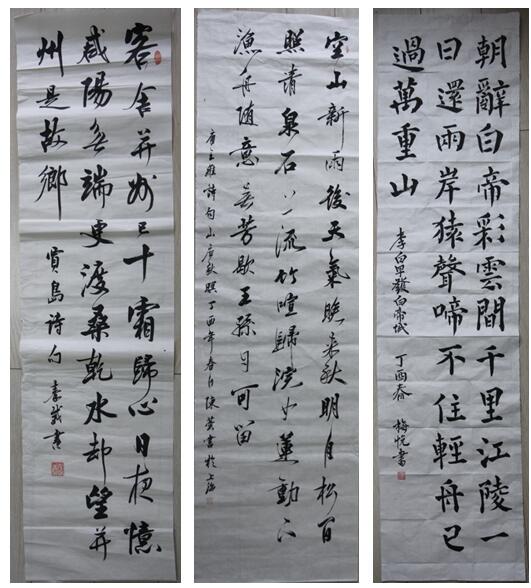 客舍并州已十霜歸心日夜憶
咸陽無端更渡桑乾水却望并
州是故鄉
賈島詩句 書
空山新雨後天氣晚来秋明月松間
照清泉石上流竹喧歸浣女蓮動下
漁舟随意春芳歇王孫自可留
唐王維詩句山居秋暝丁酉年春月陳英書於上海
朝辭白帝彩雲間千里江陵一
日還兩岸猿聲啼不住輕舟已
過萬重山
李白早發白帝城 丁酉春 梅悦書